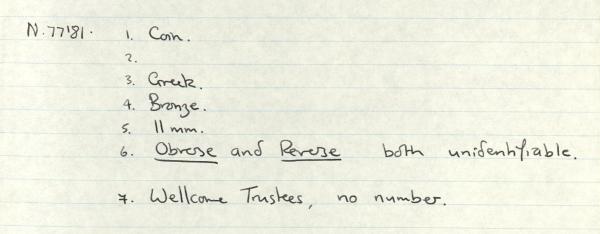 N.77'81. 1. Coin.
2.
3. Greek.
4. Bronze.
5. 11 mm.
6. Obverse and Reverse both unidentifiable.
7. Wellcome Trustees, no number.